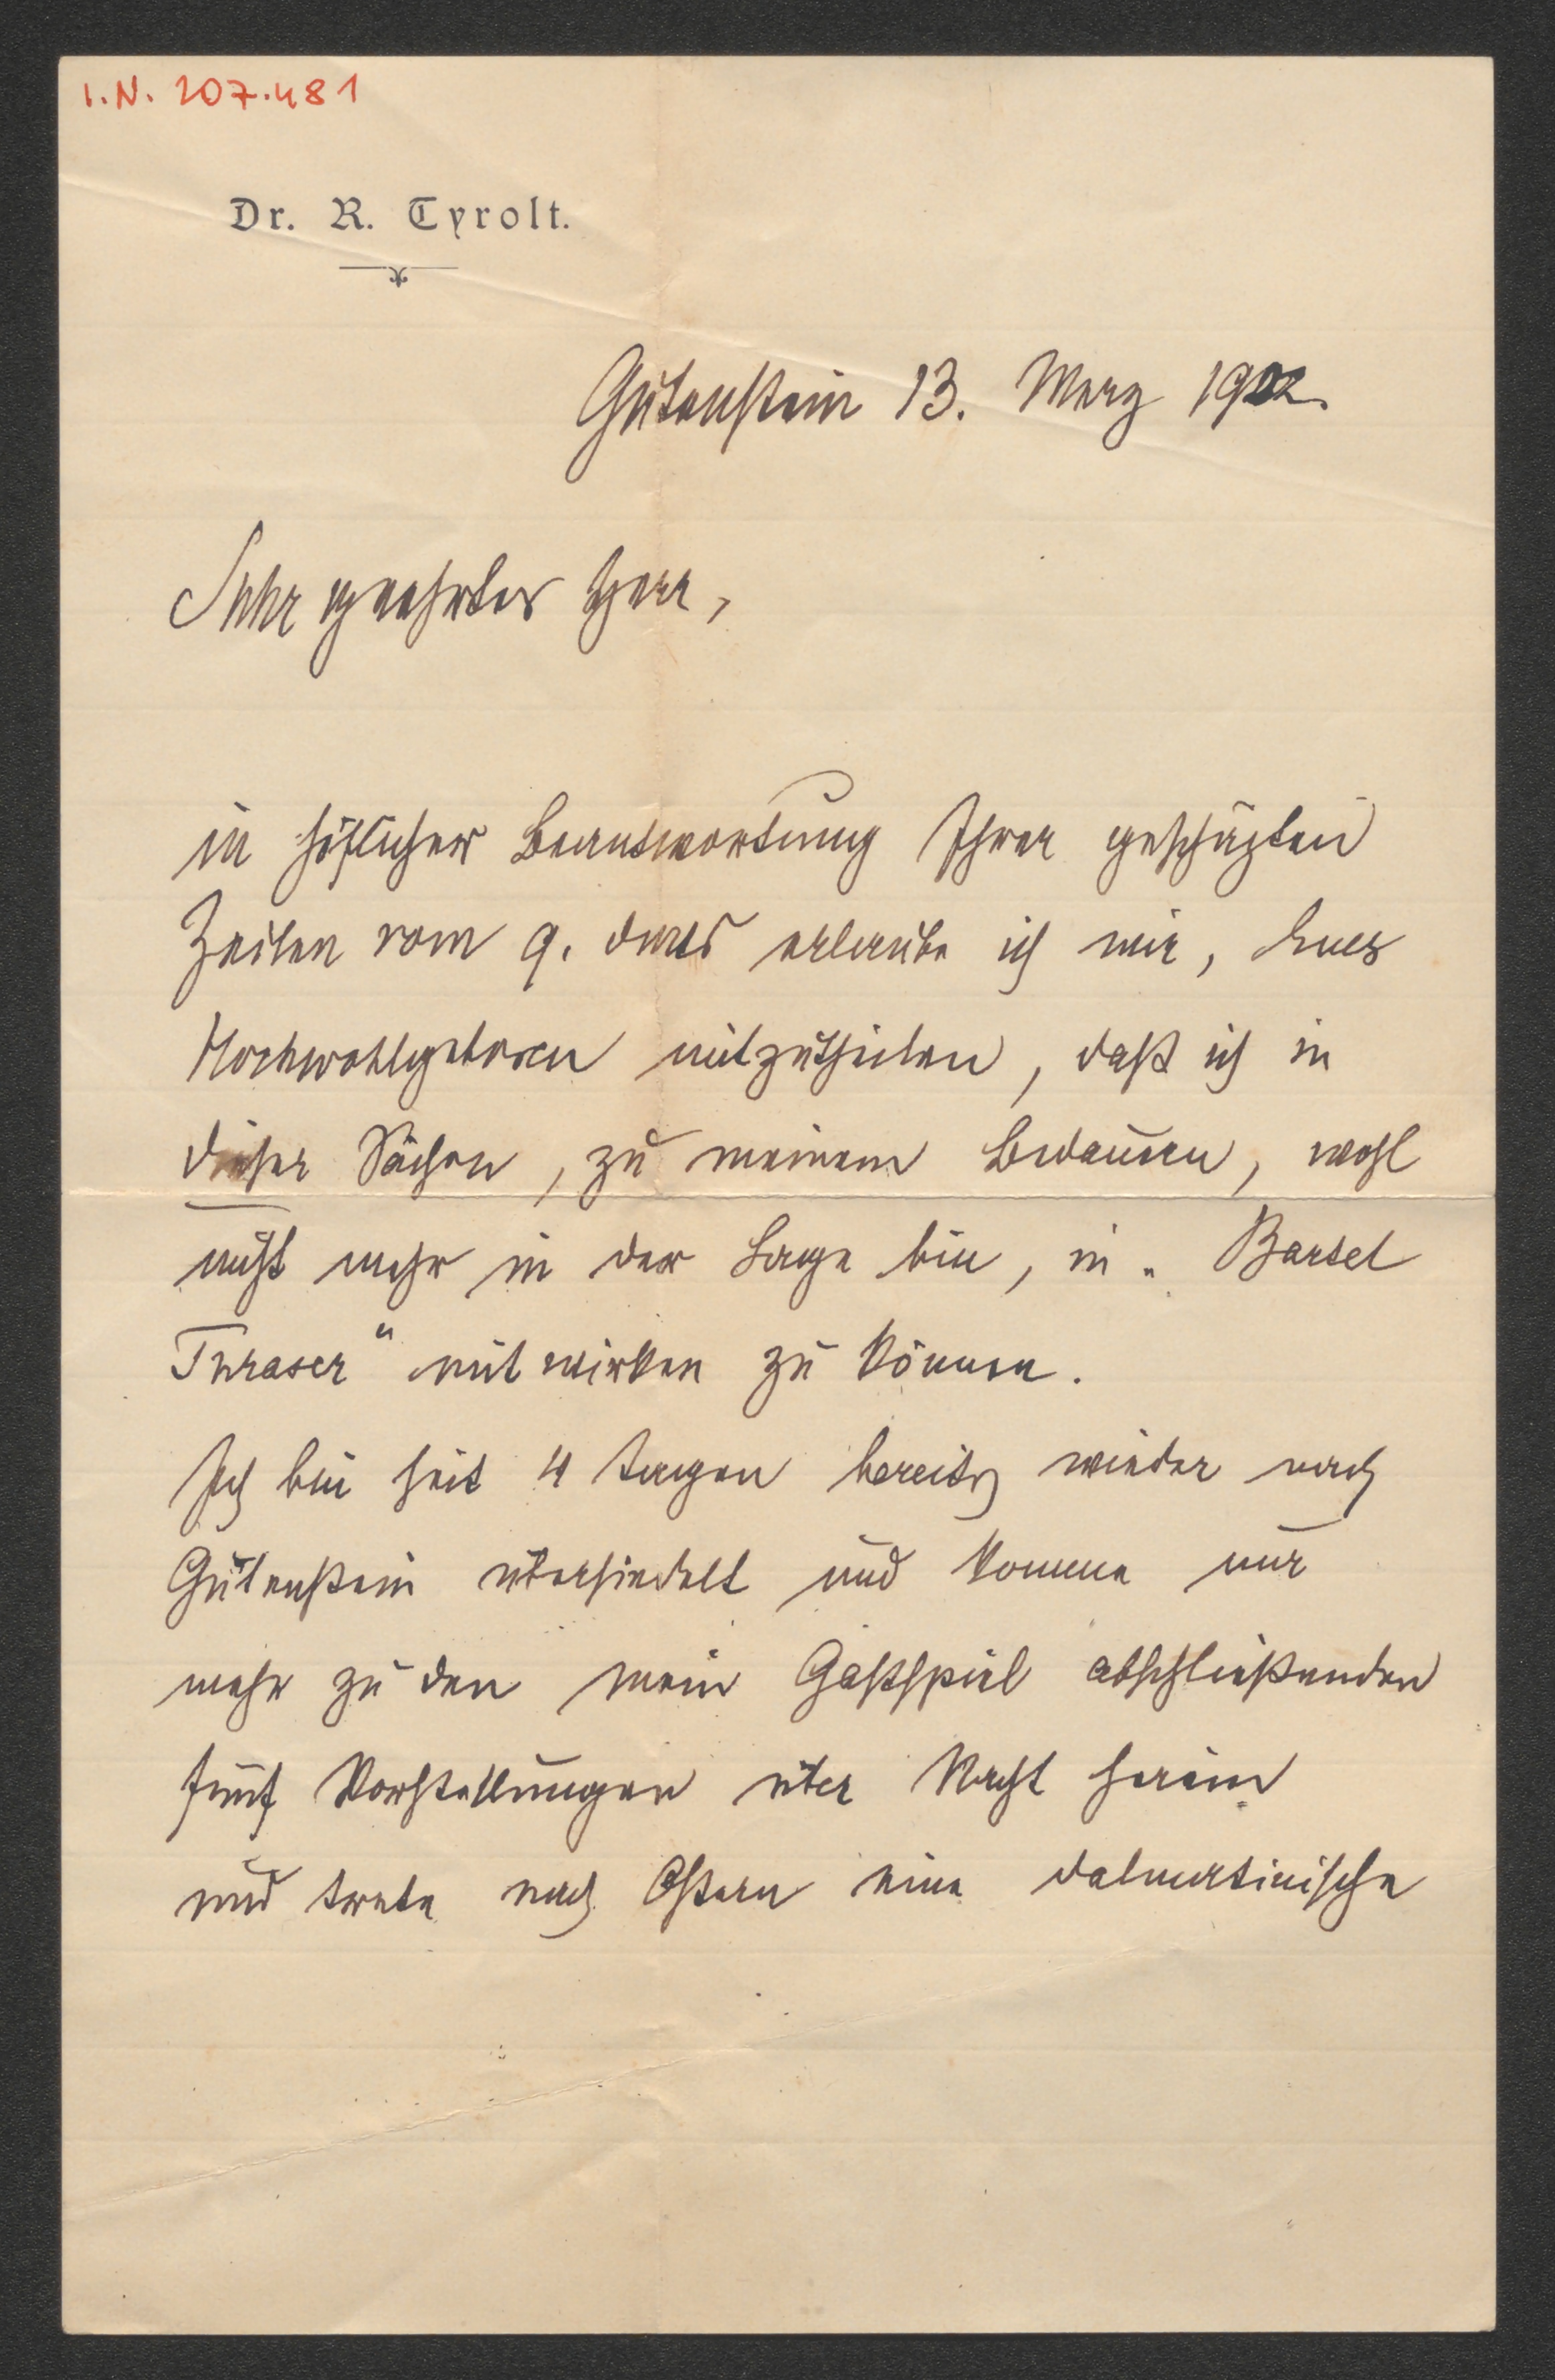 I.N. 207.481
Dr. R. Tyrolt.
Gutenstein 13. Merz 1902.
Sehr geehrter Herr,
in höflicher Beantwortung Ihrer geschäzten
Zeilen vom 9. erlaube ich mir, Euer
Hochwohlgeboren mitzutheilen, daß ich in
dieser Saison, zu meinem Bedauern, wohl
nicht mehr in der Lage bin, in „Bartel
Thraser" mitwirken zu können.
Ich bin seit 4 Tagen bereits wieder nach
Gutenstein übersiedelt und komme nur
mehr zu den mein Gastspiel abschließenden
fünf Vorstellungen über Nacht herein
und trete nach Ostern eine dalmatinische